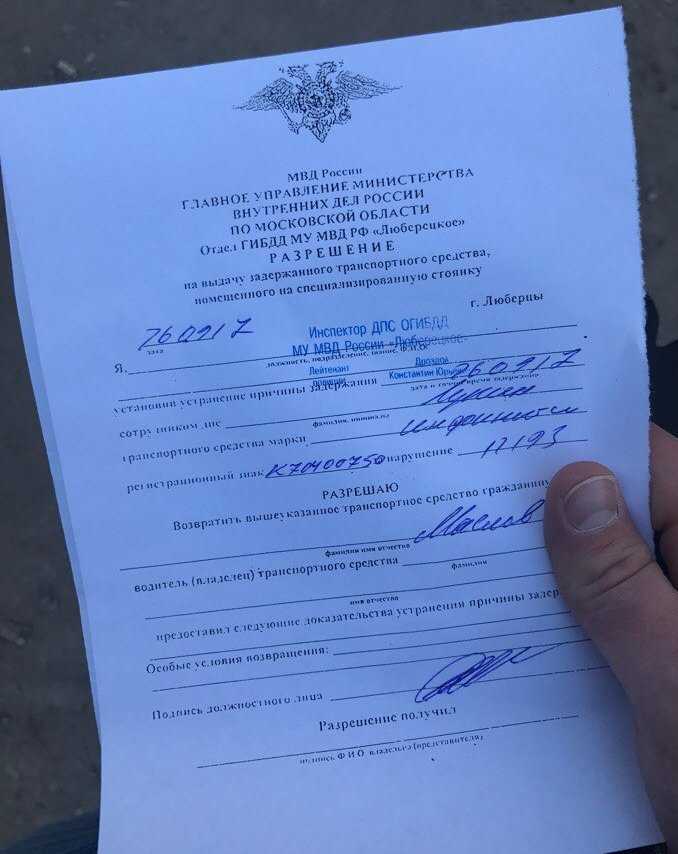 МВД России
ГЛАВНОЕ УПРАВЛЕНИЕ МИНИСТЕРСТВА
ВНУТРЕННИХ ДЕЛ РОССИИ
ПО МОСКОВСКОЙ ОБЛАСТИ
Отдел ГИБДД МУ МВД РФ «Люберецкое»
РАЗРЕШЕНИЕ
на выдачу задержанного транспортного средства,
помещенного на специализированную стоянку
г. Люберцы
260217
дата
Инспектор ДПС ОГИБДД
МУ МВД России «Люберецкое»
Я,
должность, подразделение, звание, Ф.И.О.
Лейтенант полиции
Дроздов Константин Юрьевич
установив устранение причины задержания 260217
дата и время задержания
сотрудником ДПС
фамилия, инициалы
транспортного средства марки инфинити
регистрационный знак К704ОО750 нарушение 12 193
РАЗРЕШАЮ
Возвратить вышеуказанное транспортное средство гражданину
Маслов
фамилия имя отчество
водитель (владелец) транспортного средства
фамилия
имя отчество
предоставил следующие доказательства устранения причины задер
Особые условия возвращения:
Подпись должностного лица
Разрешение получил
подпись Ф И О владельца (представителя)